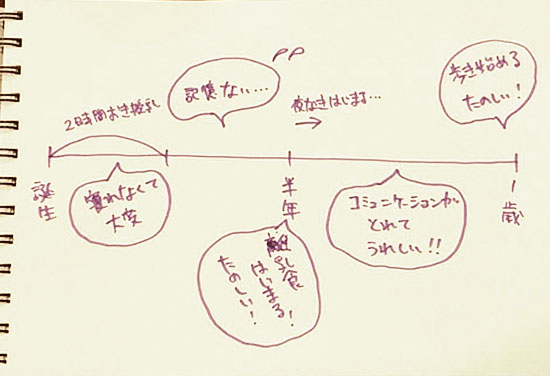 2時間おき授乳
記憶ない…
夜なきはじまる…
歩き始める
たのしい!
誕生
寝れなくて
大変
半年
離乳食
はじまる!
たのしい!
コミュニケーションが
とれて
うれしい!!
1歳